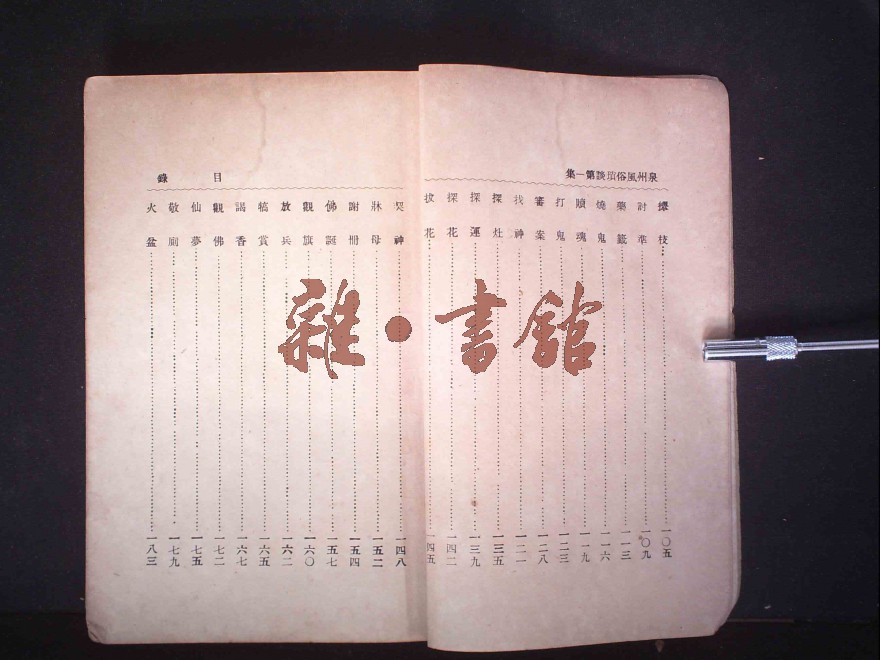 泉州風俗瑣談第一集
爆枝 一〇五
討準 一〇九
藥籤 一一三
燒鬼 一一六
贖魂 一一九
打鬼 一二三
審案 一二八
找神 一三一
探灶 一三五
探運 一三九
探花 一四二
扳花 一四五
目錄
契神 一四八
牀母 一五二
謝冊 一五四
佛誕 一五七
觀旗 一六〇
放兵 一六二
犒賞 一六五
謁香 一六七
觀佛 一七二
仙夢 一七五
敬廁 一七九
火盆 一八三
雜·書館